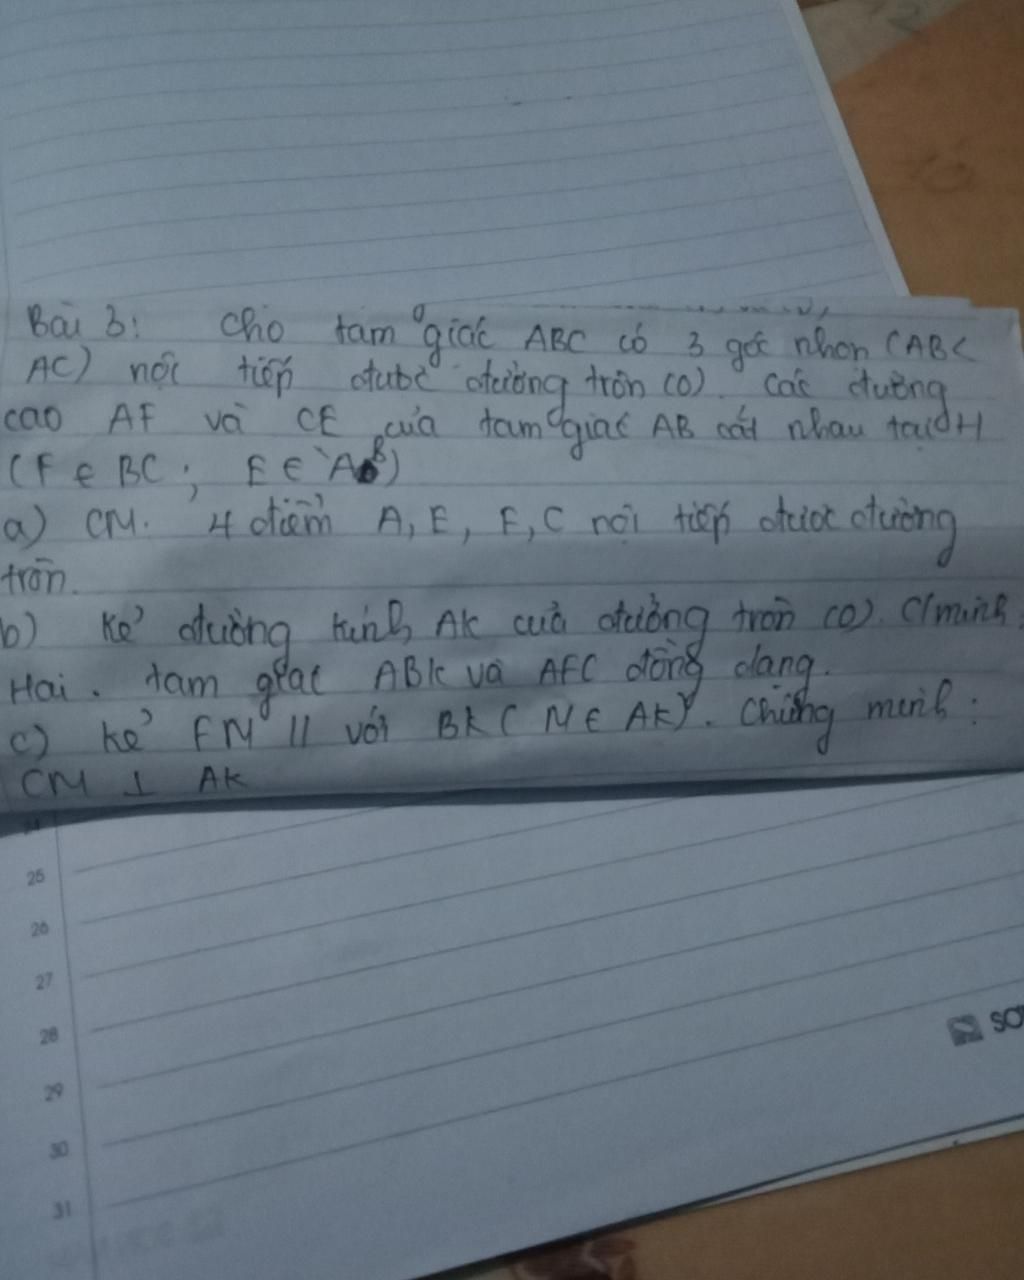 Bài 3: Cho tam giác ABC có 3 góc nhọn (AB<
AC) nội tiếp được đường tròn (O). Các đường
cao AF và CE của tam giác AB cắt nhau tại H
(F ∈ BC; E ∈ AB)
a) CM. 4 điểm A, E, F, C nội tiếp được đường
tròn.
b) Kẻ đường kính AK của đường tròn (O). C/minh:
Hai. tam giác ABK và AFC đồng dạng.
c) Kẻ FM // với BK (M ∈ AK). Chứng minh:
CM ⊥ AK
25
26
27
28
29
30
31